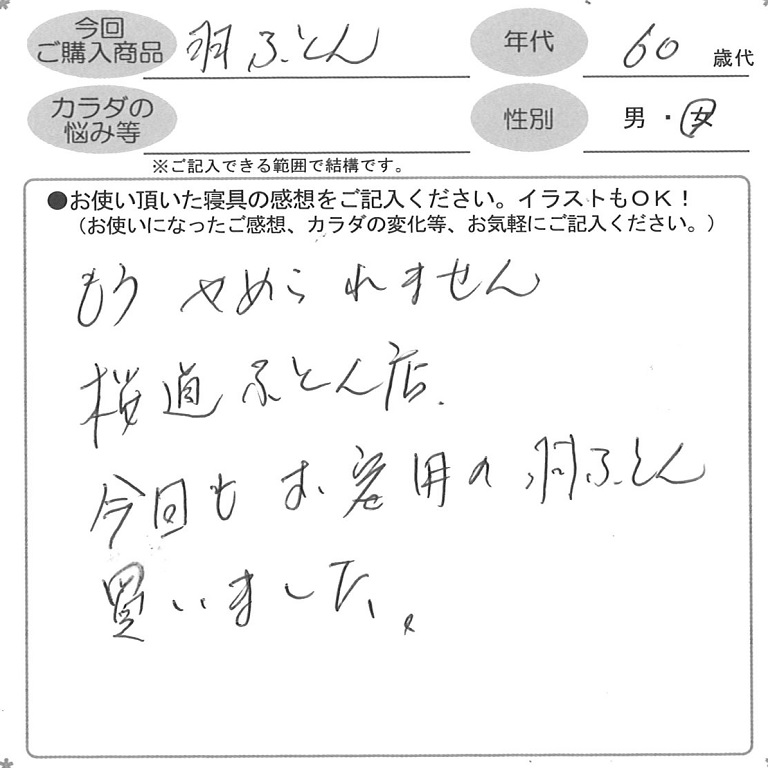 今回
ご購入商品
羽ふとん
年代
60 歳代
カラダの
悩み等
性別
男・女
※ご記入できる範囲で結構です。
●お使い頂いた寝具の感想をご記入ください。イラストもOK！
（お使いになったご感想、カラダの変化等、お気軽にご記入ください。）
もうやめられません
桜道ふとん店.
今回もお客用の羽ふとん
買いました。